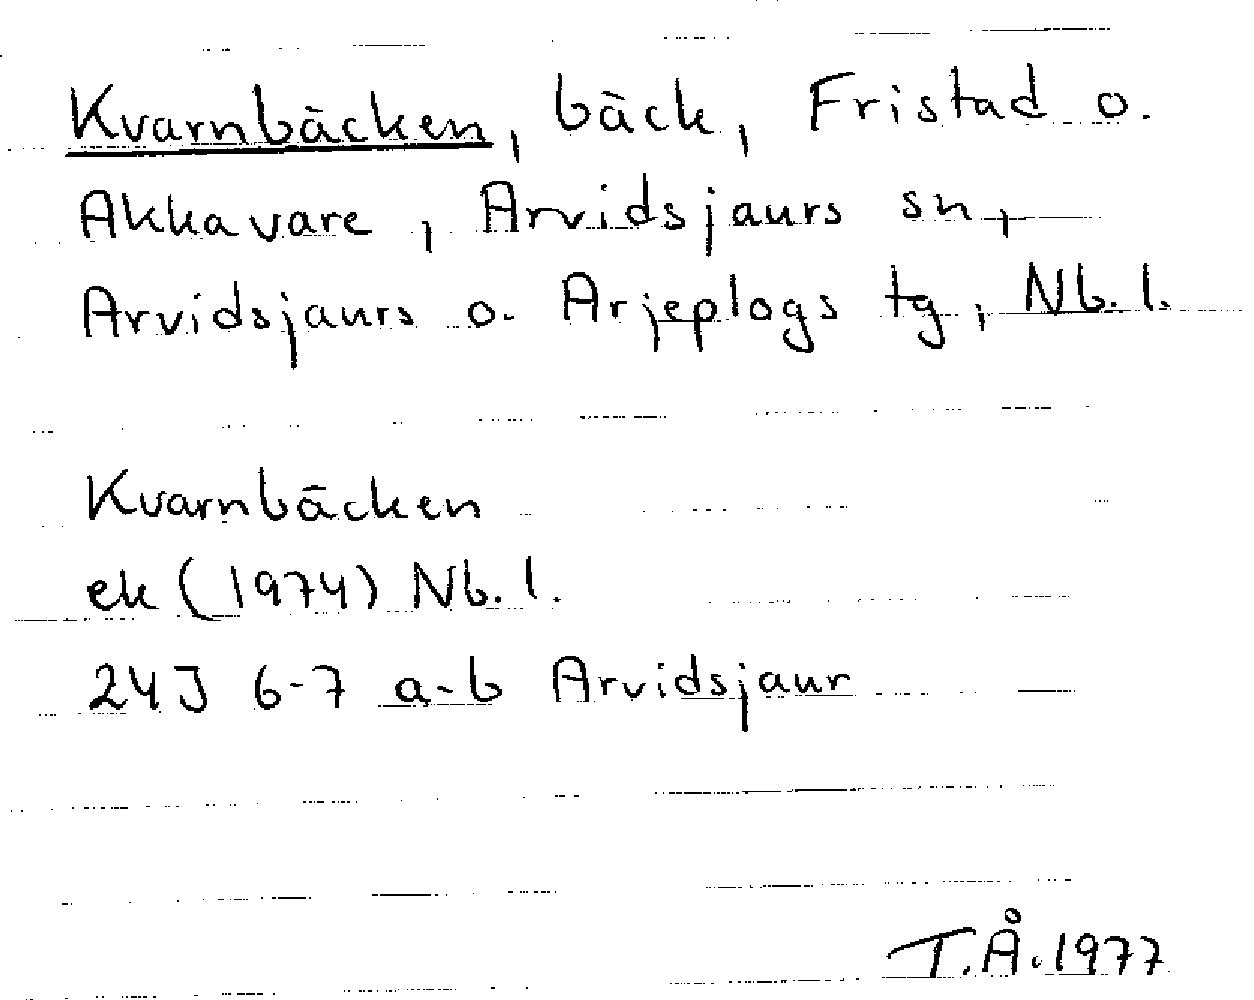 Kvarnbäcken, bäck, Fristad o.
Akkavare, Arvidsjaurs sn,
Arvidsjaurs o. Arjeplogs tg, Nb. l.
Kvarnbäcken
ek (1974) Nb. l.
24J 6-7 a-b Arvidsjaur
T.Å. 1977